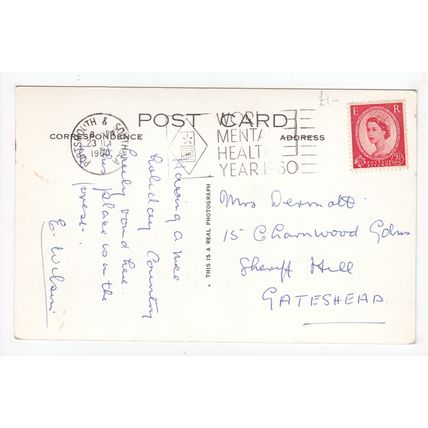 £1-
POST CARD
CORRESPONDENCE
ADDRESS
PORTSMOUTH &
23
1960
WORLD
MENTAL
HEALTH
YEAR 1960
E R
2½
Having a nice
holiday Country
lovely round here.
This place is in the
press.
E. Wilson
• THIS IS A REAL PHOTOGRAPH
Mrs Dermott
15 Charnwood Gdns
Sheriff Hill
GATESHEAD